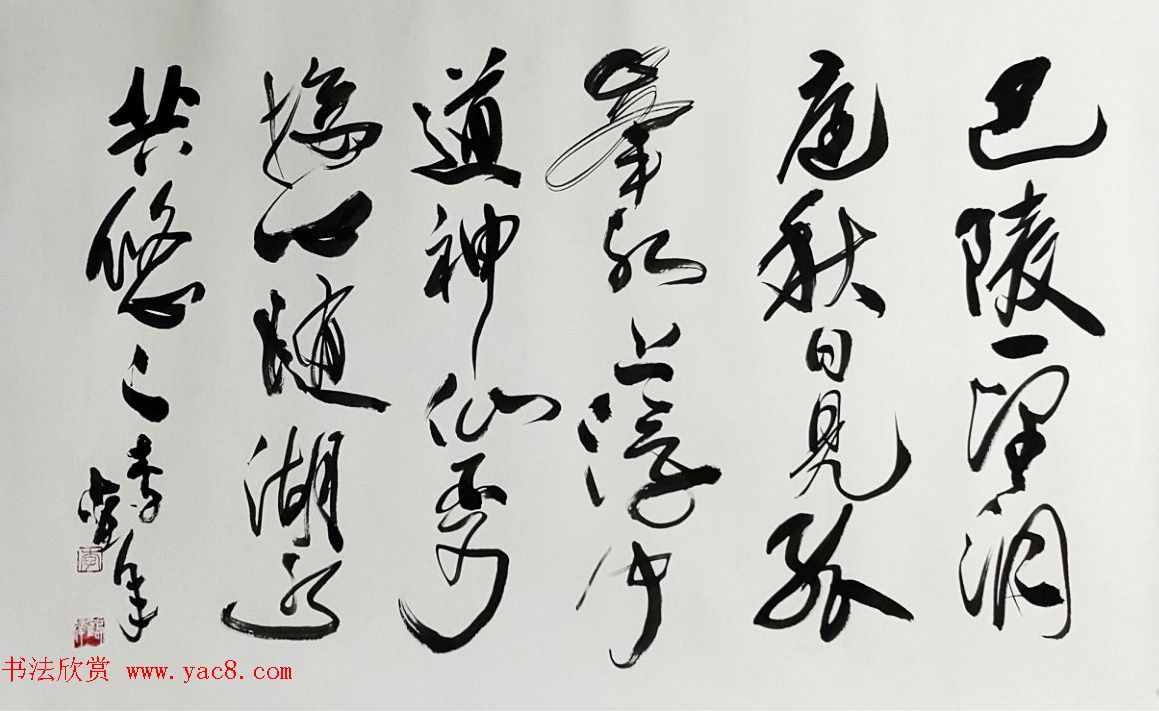 巴陵一望洞
庭秋日見孤
峯水上浮闻
道神仙不可
接心随湖水
共悠々
书法欣赏 www.yac8.com